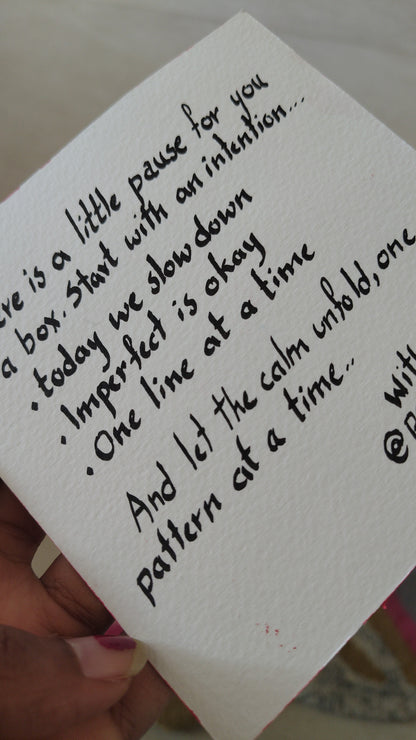 ere is a little pause for you
a box. Start with an intention...
• today we slow down
• Imperfect is okay
• One line at a time
And let the calm unfold, one
pattern at a time..
With
@P